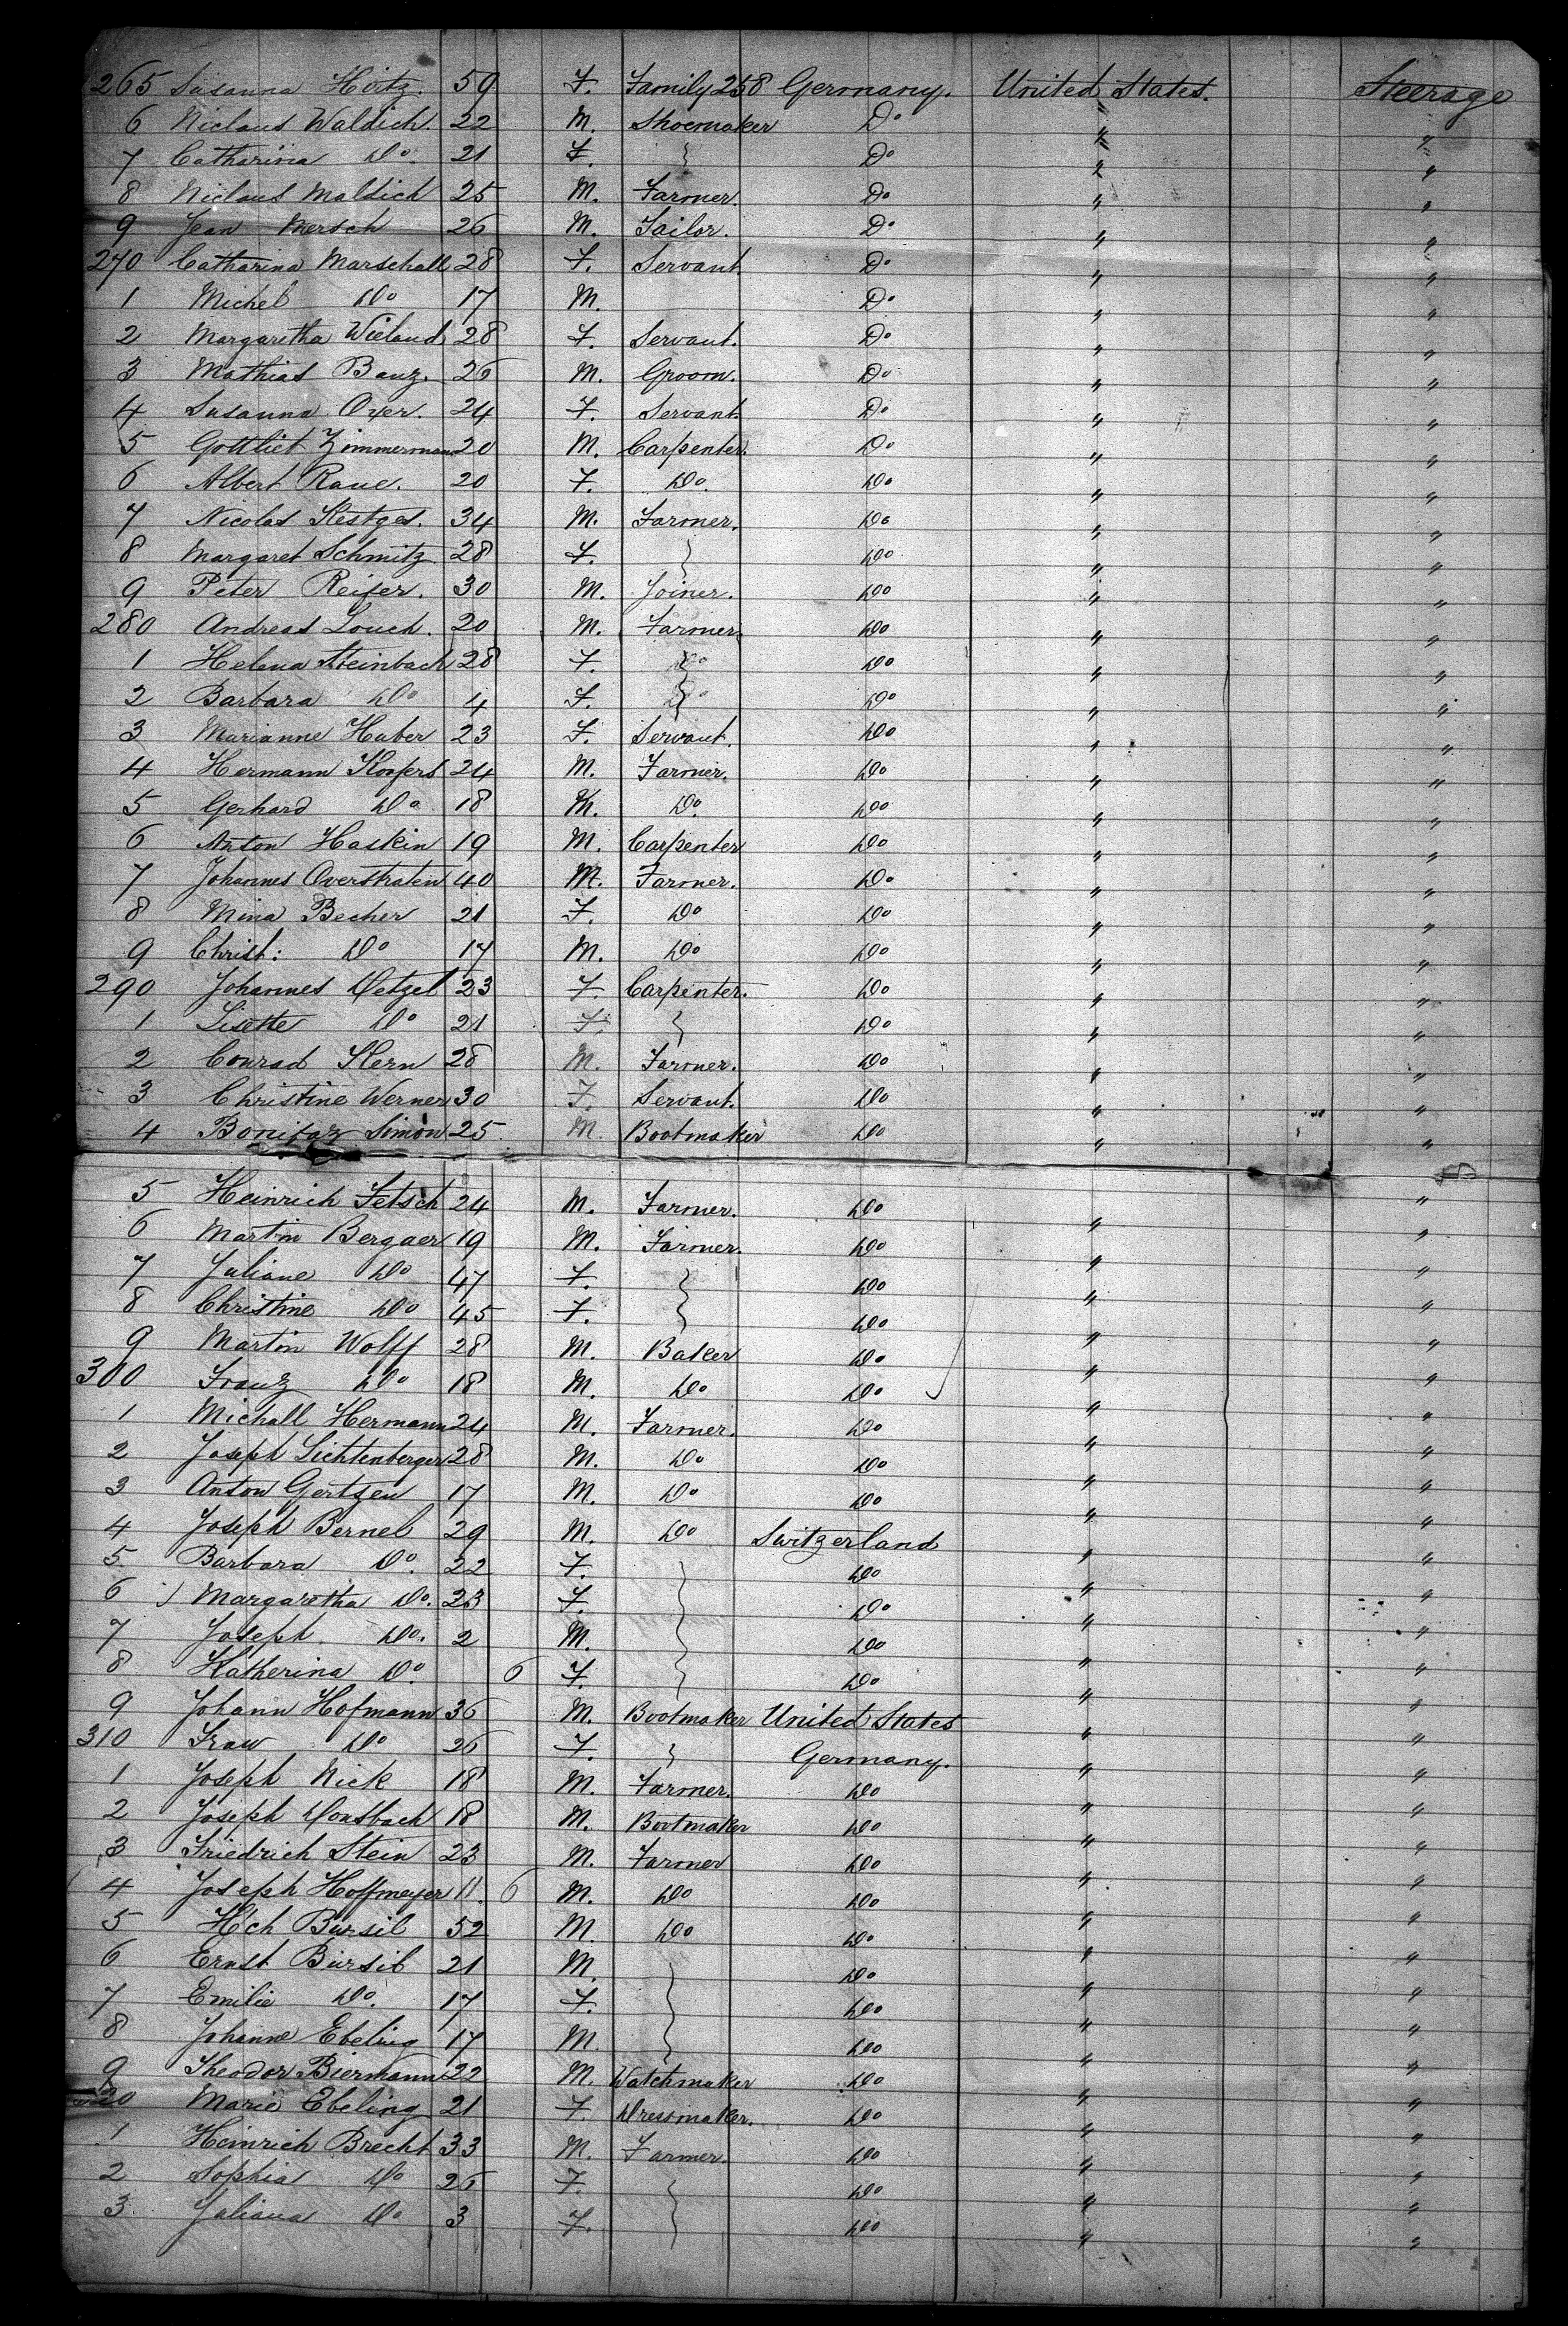 265 Susanna Hirtz. 59 F. Family 258 Germany. United States. Steerage
6 Niclaus Waldich. 22 M. Shoemaker Do " "
7 Catharina Do. 21 F. } Do " "
8 Niclaus Maldich 25 M. Farmer. Do " "
9 Jean Mersch 26 M. Tailor. Do " "
270 Catharina Marschall 28 F. Servant Do " "
1 Michel Do 17 M. Do " "
2 Margaretha Wieland 28 F. Servant. Do " "
3 Mathias Bauz. 26 M. Groom. Do " "
4 Susanna Oxer. 24 F. Servant. Do " "
5 Gottliet Zimmermann 20 M. Carpenter. Do " "
6 Albert Raue. 20 F. Do. Do " "
7 Nicolas Kestges. 34 M. Farmer. Do " "
8 Margaret Schmitz 28 F. } Do " "
9 Peter Reifer. 30 M. Joiner. Do " "
280 Andreas Louch. 20 M. Farmer. Do " "
1 Helena Steinbach 28 F. Do " "
2 Barbara Do 4 F. } Do " "
3 Marianne Huber 23 F. Servant. Do " "
4 Hermann Koofers 24 M. Farmer. Do " "
5 Gerhard Do 18 M. Do. Do " "
6 Anton Haskin 19 M. Carpenter Do " "
7 Johannes Overstraten 40 M. Farmer. Do " "
8 Mina Becher 21 F. Do Do " "
9 Christ: Do 17 M. Do Do " "
290 Johannes Detzel 23 F. Carpenter. Do " "
1 Lisette Do 21 F. } Do " "
2 Conrad Kern 28 M. Farmer. Do " "
3 Christine Werner 30 F. Servant. Do " "
4 Bonifaz Simon 25 M. Bootmaker Do " "
5 Heinrich Fetsch 24 M. Farmer. Do " "
6 Martin Bergaer 19 M. Farmer. Do " "
7 Juliane Do 47 F. } Do " "
8 Christine Do 45 F. } Do " "
9 Martin Wolff 28 M. Baker Do " "
300 Franz Do 18 M. Do Do " "
1 Michall Hermann 24 M. Farmer. Do " "
2 Joseph Lichtenberger 28 M. Do Do " "
3 Anton Gertzen 17 M. Do Do " "
4 Joseph Bernel 29 M. Do Switzerland " "
5 Barbara Do. 22 F. } Do " "
6 Margaretha Do. 23 F. } Do " "
7 Joseph Do. 2 M. } Do " "
8 Katherina Do. 6 F. } Do " "
9 Johann Hofmann 36 M. Bootmaker United States " "
310 Fraw Do 26 F. } Germany. " "
1 Joseph Nick 18 M. Farmer. Do " "
2 Joseph Donsbach 18 M. Bootmaker Do " "
3 Friedrich Stein 23 M. Farmer Do " "
4 Joseph Hoffmeyer 11 6 M. Do Do " "
5 H'ch Bursil 52 M. Do Do " "
6 Ernst Bursib 21 M. } Do " "
7 Emilie Do. 17 F. } Do " "
8 Johanne Ebeling 17 M. } Do " "
9 Theodor Biermann 22 M. Watchmaker Do " "
320 Marie Ebeling 21 F. Dressmaker. Do " "
1 Heinrich Brecht 33 M. Farmer. Do " "
2 Sophia Do 26 F. } Do " "
3. Juliana Do 3 F. } Do " "